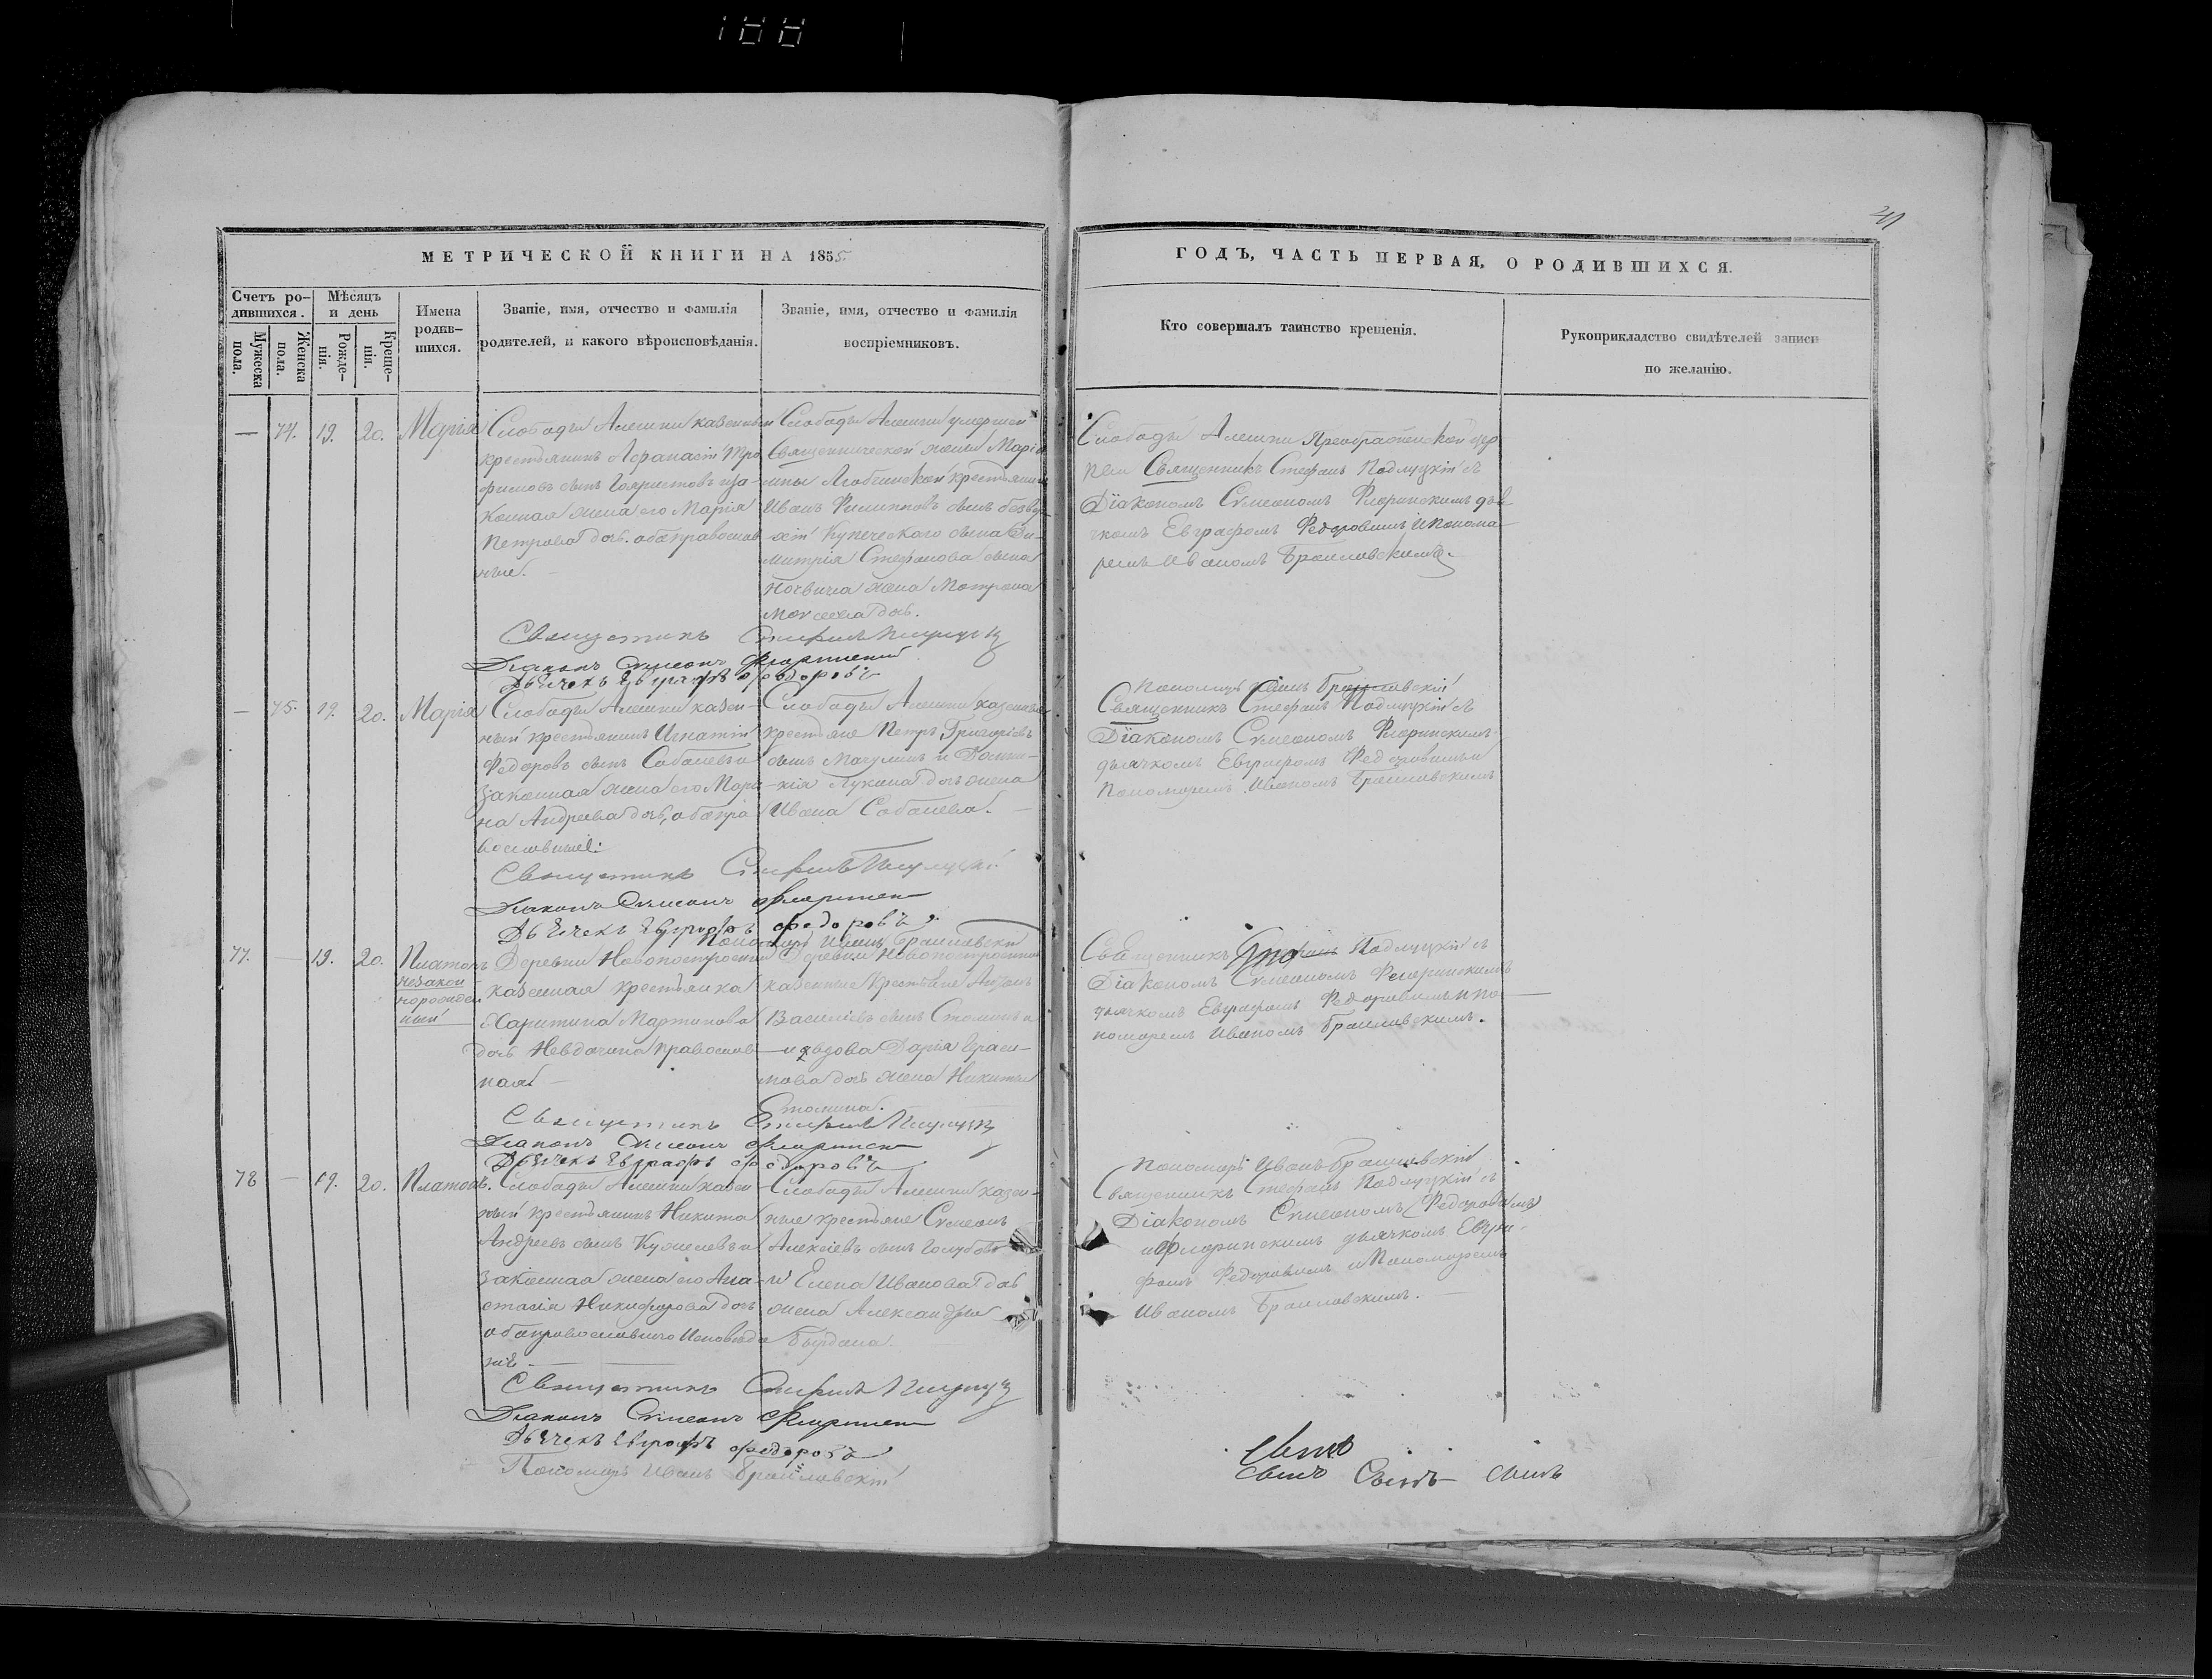 188
41
МЕТРИЧЕСКОЙ КНИГИ НА 1855
ГОДЪ, ЧАСТЬ ПЕРВАЯ, О РОДИВШИХСЯ.
Счетъ ро-
дившихся.
Мужеска пола.
Женска пола.
Мѣсяцъ
и день
Рожде-
нія.
Креще-
нія.
Имена
родив-
шихся.
Званіе, имя, отчество и фамилія
родителей, и какого вѣроисповѣданія.
Званіе, имя, отчество и фамилія
воспріемниковъ.
Кто совершалъ таинство крещенія.
Рукоприкладство свидѣтелей записи
по желанію.
— 74. 19. 20. Марія
Слободы Алешни казенный
крестьянинъ Афанасій Тро
фимовъ сынъ и за-
конная жена его Марія
Петрова дочь. оба православ
ные.
Слободы Алешни умершей
Священнической жены Марі
крестьянинъ
Иванъ Филиповъ сынъ
Купеческого сына Ди-
митрія Стефанова сына
жена Матрона
дочь.
Слободы Алешни Преображенской цер
кви Священникъ Стефанъ Подлуцкій съ
Діакономъ Сѵмеономъ Флоринскимъ дья
чкомъ Евграфомъ Федоровымъ и понома
ремъ Иваномъ Браиловскимъ.
Священникъ Стефанъ Подлуцкій
Діаконъ Сѵмеонъ Флоринскій
Дьячекъ Евграфъ Федоровъ
Пономарь Иванъ Браиловскій
— 75. 19. 20. Марія
Слободы Алешни казен-
ный крестьянинъ Игнатій
Федоровъ сынъ Собалевъ и
законная жена его Мари
на Андреева дочь, оба пра
вославные.
Слободы Алешни казенные
крестьяне Петръ Григоріевъ
сынъ и Домни-
кія Лукина дочь жена
Ивана Собалева.
Священникъ Стефанъ Подлуцкій съ
Діакономъ Сѵмеономъ Флоринскимъ
дьячкомъ Евграфомъ Федоровымъ и
Пономаремъ Иваномъ Браиловскимъ
Священникъ Стефанъ Подлуцкій
Діаконъ Сѵмеонъ Флоринскій
Дьячекъ Евграфъ Федоровъ
Пономарь Иванъ Браиловскій
77. — 19. 20. Платонъ
незакон
норожден
ный
Деревни Новопостроенной
казенная крестьянка
Харитина Мартинова
дочь Невдачина православ
ная
Деревни Новопостроенной
казенные крестьяне
Василіевъ сынъ Столинъ
и вдова Дарія Гераси-
мова дочь жена Никиты
Столина.
Священникъ Стефанъ Подлуцкій съ
Діакономъ Сѵмеономъ Флоринскимъ
дьячкомъ Евграфомъ Федоровымъ и по
номаремъ Иваномъ Браиловскимъ.
Священникъ Стефанъ Подлуцкій
Діаконъ Сѵмеонъ Флоринскій
Дьячекъ Евграфъ Федоровъ
Пономарь Иванъ Браиловскій
78 — 19. 20. Платонъ.
Слободы Алешни казен
ный крестьянинъ Никита
Андреевъ сынъ и
законная жена его Ана-
стасія Никифорова дочь
оба православного исповѣда
ніе.
Слободы Алешни казен-
ные крестьяне Сѵмеонъ
Алексіевъ сынъ
и Елена Иванова дочь
жена Александра
Священникъ Стефанъ Подлуцкій съ
Діакономъ Сѵмеономъ Федоровымъ
и Флоринскимъ дьячкомъ Евгра-
фомъ Федоровымъ и Пономаремъ
Иваномъ Браиловскимъ.
Священникъ Стефанъ Подлуцкій
Діаконъ Сѵмеонъ Флоринскій
Дьячекъ Евграфъ Федоровъ
Пономарь Иванъ Браиловскій